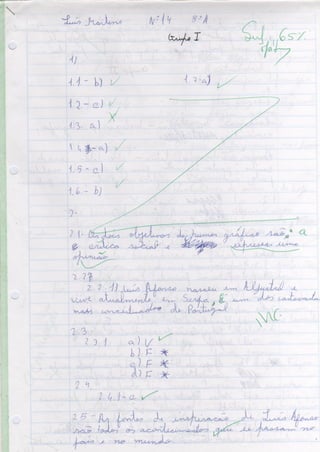 Luís Martins Nº 14 8º A
Grupo I
Suf 65%
1)
1.1 - b)
1.7 - a)
1.2 - c)
1.3 a)
1.4 - a)
1.5 - c)
1.6 - b)
2-
2.1. Os dois objetivos do humor gráfico são: a
crítica social e expressar uma
opinião
2.2
2.2.1) Luís Afonso nasceu em Aljustrel e
vive atualmente em Serpa, É um dos cartoonistas
mais conceituados de Portugal
2.3.
2.3.1. a) V
b) F
c) F
d) F
2.4.
2.4.1 - a
2.5 - As fontes de inspiração de Luís Afonso
são todos os acontecimentos que se passam no
país e no mundo